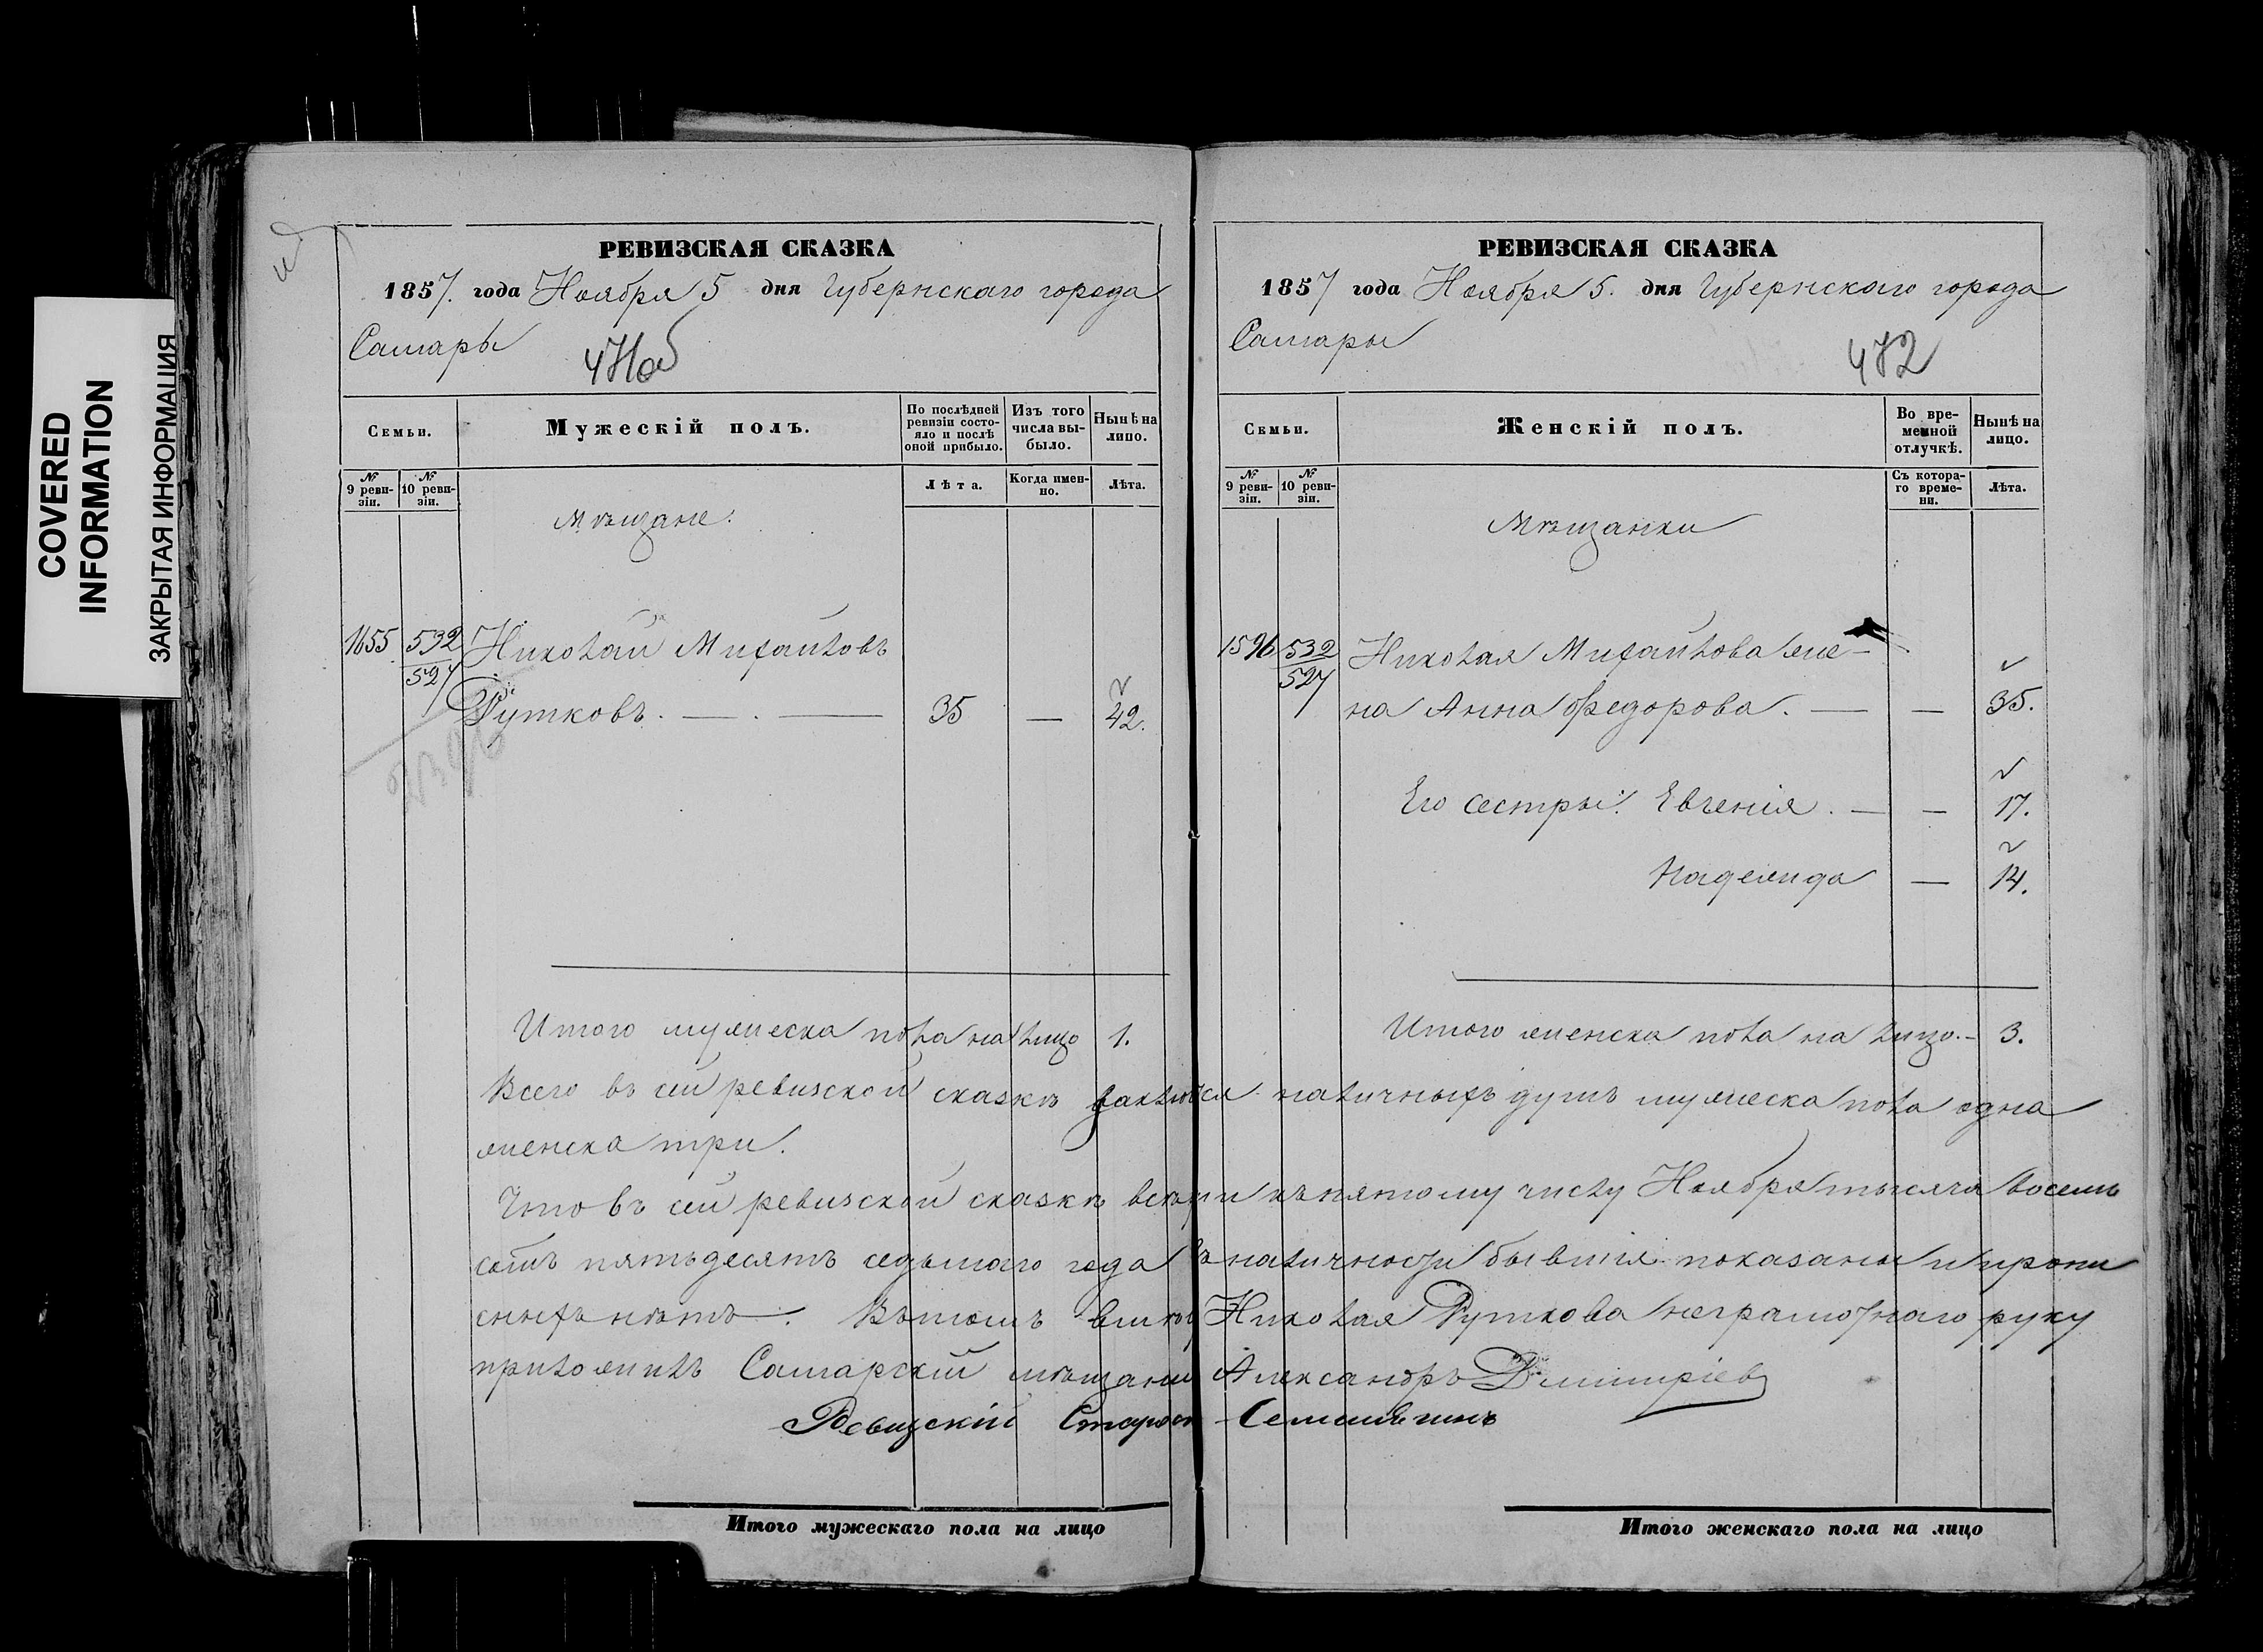 COVERED
INFORMATION
ЗАКРЫТАЯ ИНФОРМАЦИЯ
РЕВИЗСКАЯ СКАЗКА
1857. года Ноября 5 дня Губернскаго города
Самары
471об
Семьи.
Мужескій полъ.
По послѣдней ревизіи состояло и послѣ оной прибыло.
Изъ того числа выбыло.
Нынѣ на лицо.
№ 9 ревизіи.
№ 10 ревизіи.
Лѣта.
Когда именно.
Лѣта.
мѣщане.
1655 532 Николай Михайловъ
527 Рутковъ. — . — 35 — 42.
Итого мужеска пола на лицо 1.
РЕВИЗСКАЯ СКАЗКА
1857 года Ноября 5. дня Губернскаго города
Самары
472
Семьи.
Женскій полъ.
Во временной отлучкѣ.
Нынѣ на лицо.
№ 9 ревизіи.
№ 10 ревизіи.
Съ котораго времени.
Лѣта.
Мѣщанки
1596 532 Николая Михайлова же-
527 на Анна Федорова. — — 35.
Его сестры: Евгенія. — — 17.
Надежда — 14.
Итого женска пола на лицо. - 3.
Всего въ сей ревизской сказкѣ наличныхъ душъ мужеска пола одна
женска три.
Что въ сей ревизской сказкѣ къ пятому числу Ноября тысяча восемь
сотъ пятьдесятъ седьмаго года въ наличности бывшія показаны и пропи
сныхъ нѣтъ. Въ томъ вмѣсто Николая Руткова неграмотнаго руку
приложилъ Самарскій мѣщанин Александръ Дмитріев
Ревизскій Старост
Итого мужескаго пола на лицо
Итого женскаго пола на лицо